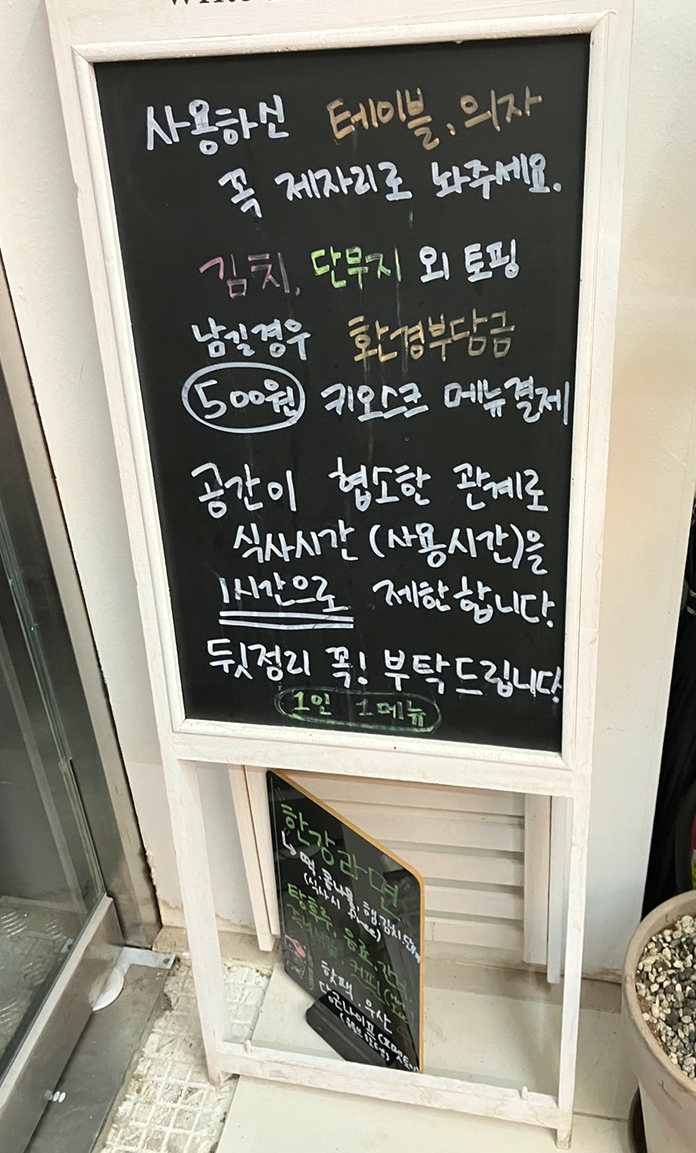 사용하신 테이블, 의자
꼭 제자리로 놔주세요.
김치, 단무지 외 토핑
남길경우 환경부담금
500원 키오스크 메뉴결제
공간이 협소한 관계로
식사시간 (사용시간)을
1시간으로 제한합니다.
뒷정리 꼭! 부탁드립니다
1인 1메뉴
한강라면
떡, 콩나물, 햄, 김치
탕후루, 음료,
커피
핫팩, 우산